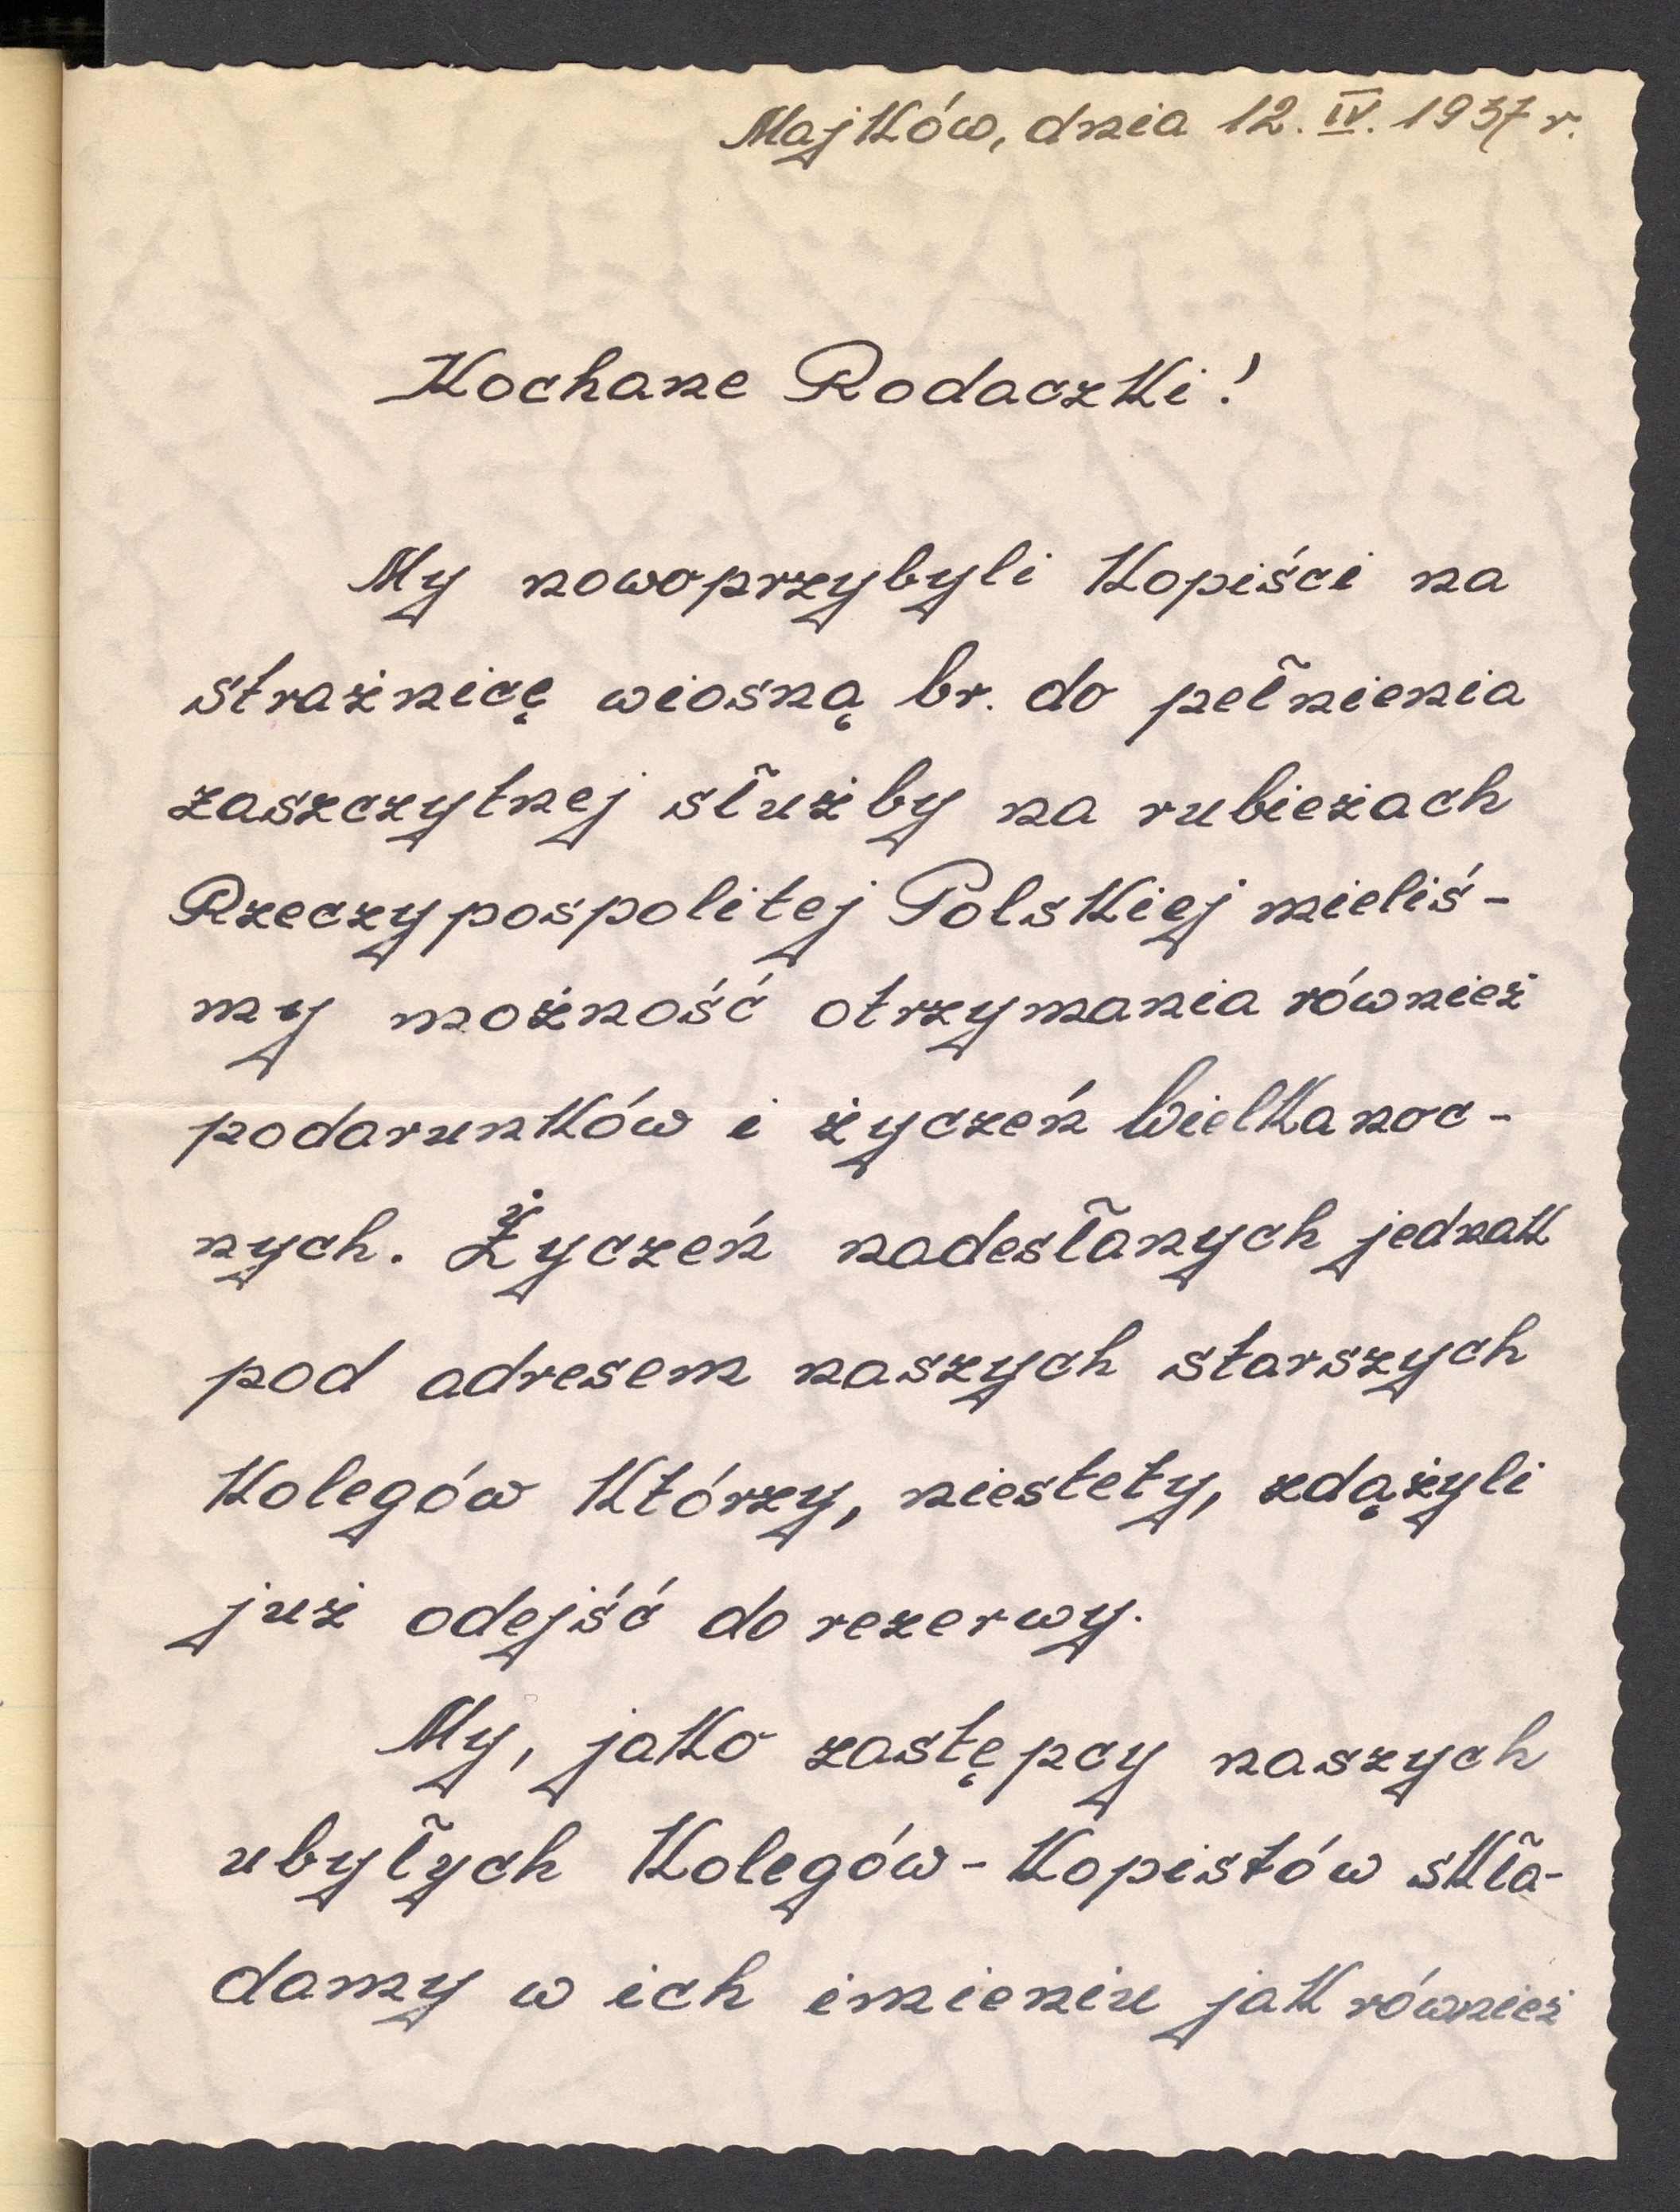 Majków, dnia 12. IV. 1937 r.
Kochane Rodaczki!
My nowoprzybyli Kopiści na
strażnicę wiosną br. do pełnienia
zaszczytnej służby na rubieżach
Rzeczypospolitej Polskiej mieliś-
my możność otrzymania również
podarunków i życzeń Wielkanoc-
nych. Życzeń nadesłanych jednak
pod adresem naszych starszych
Kolegów którzy, niestety, zdążyli
już odejść do rezerwy.
My, jako zastępcy naszych
ubyłych Kolegów-Kopistów skła-
damy w ich imieniu jak również